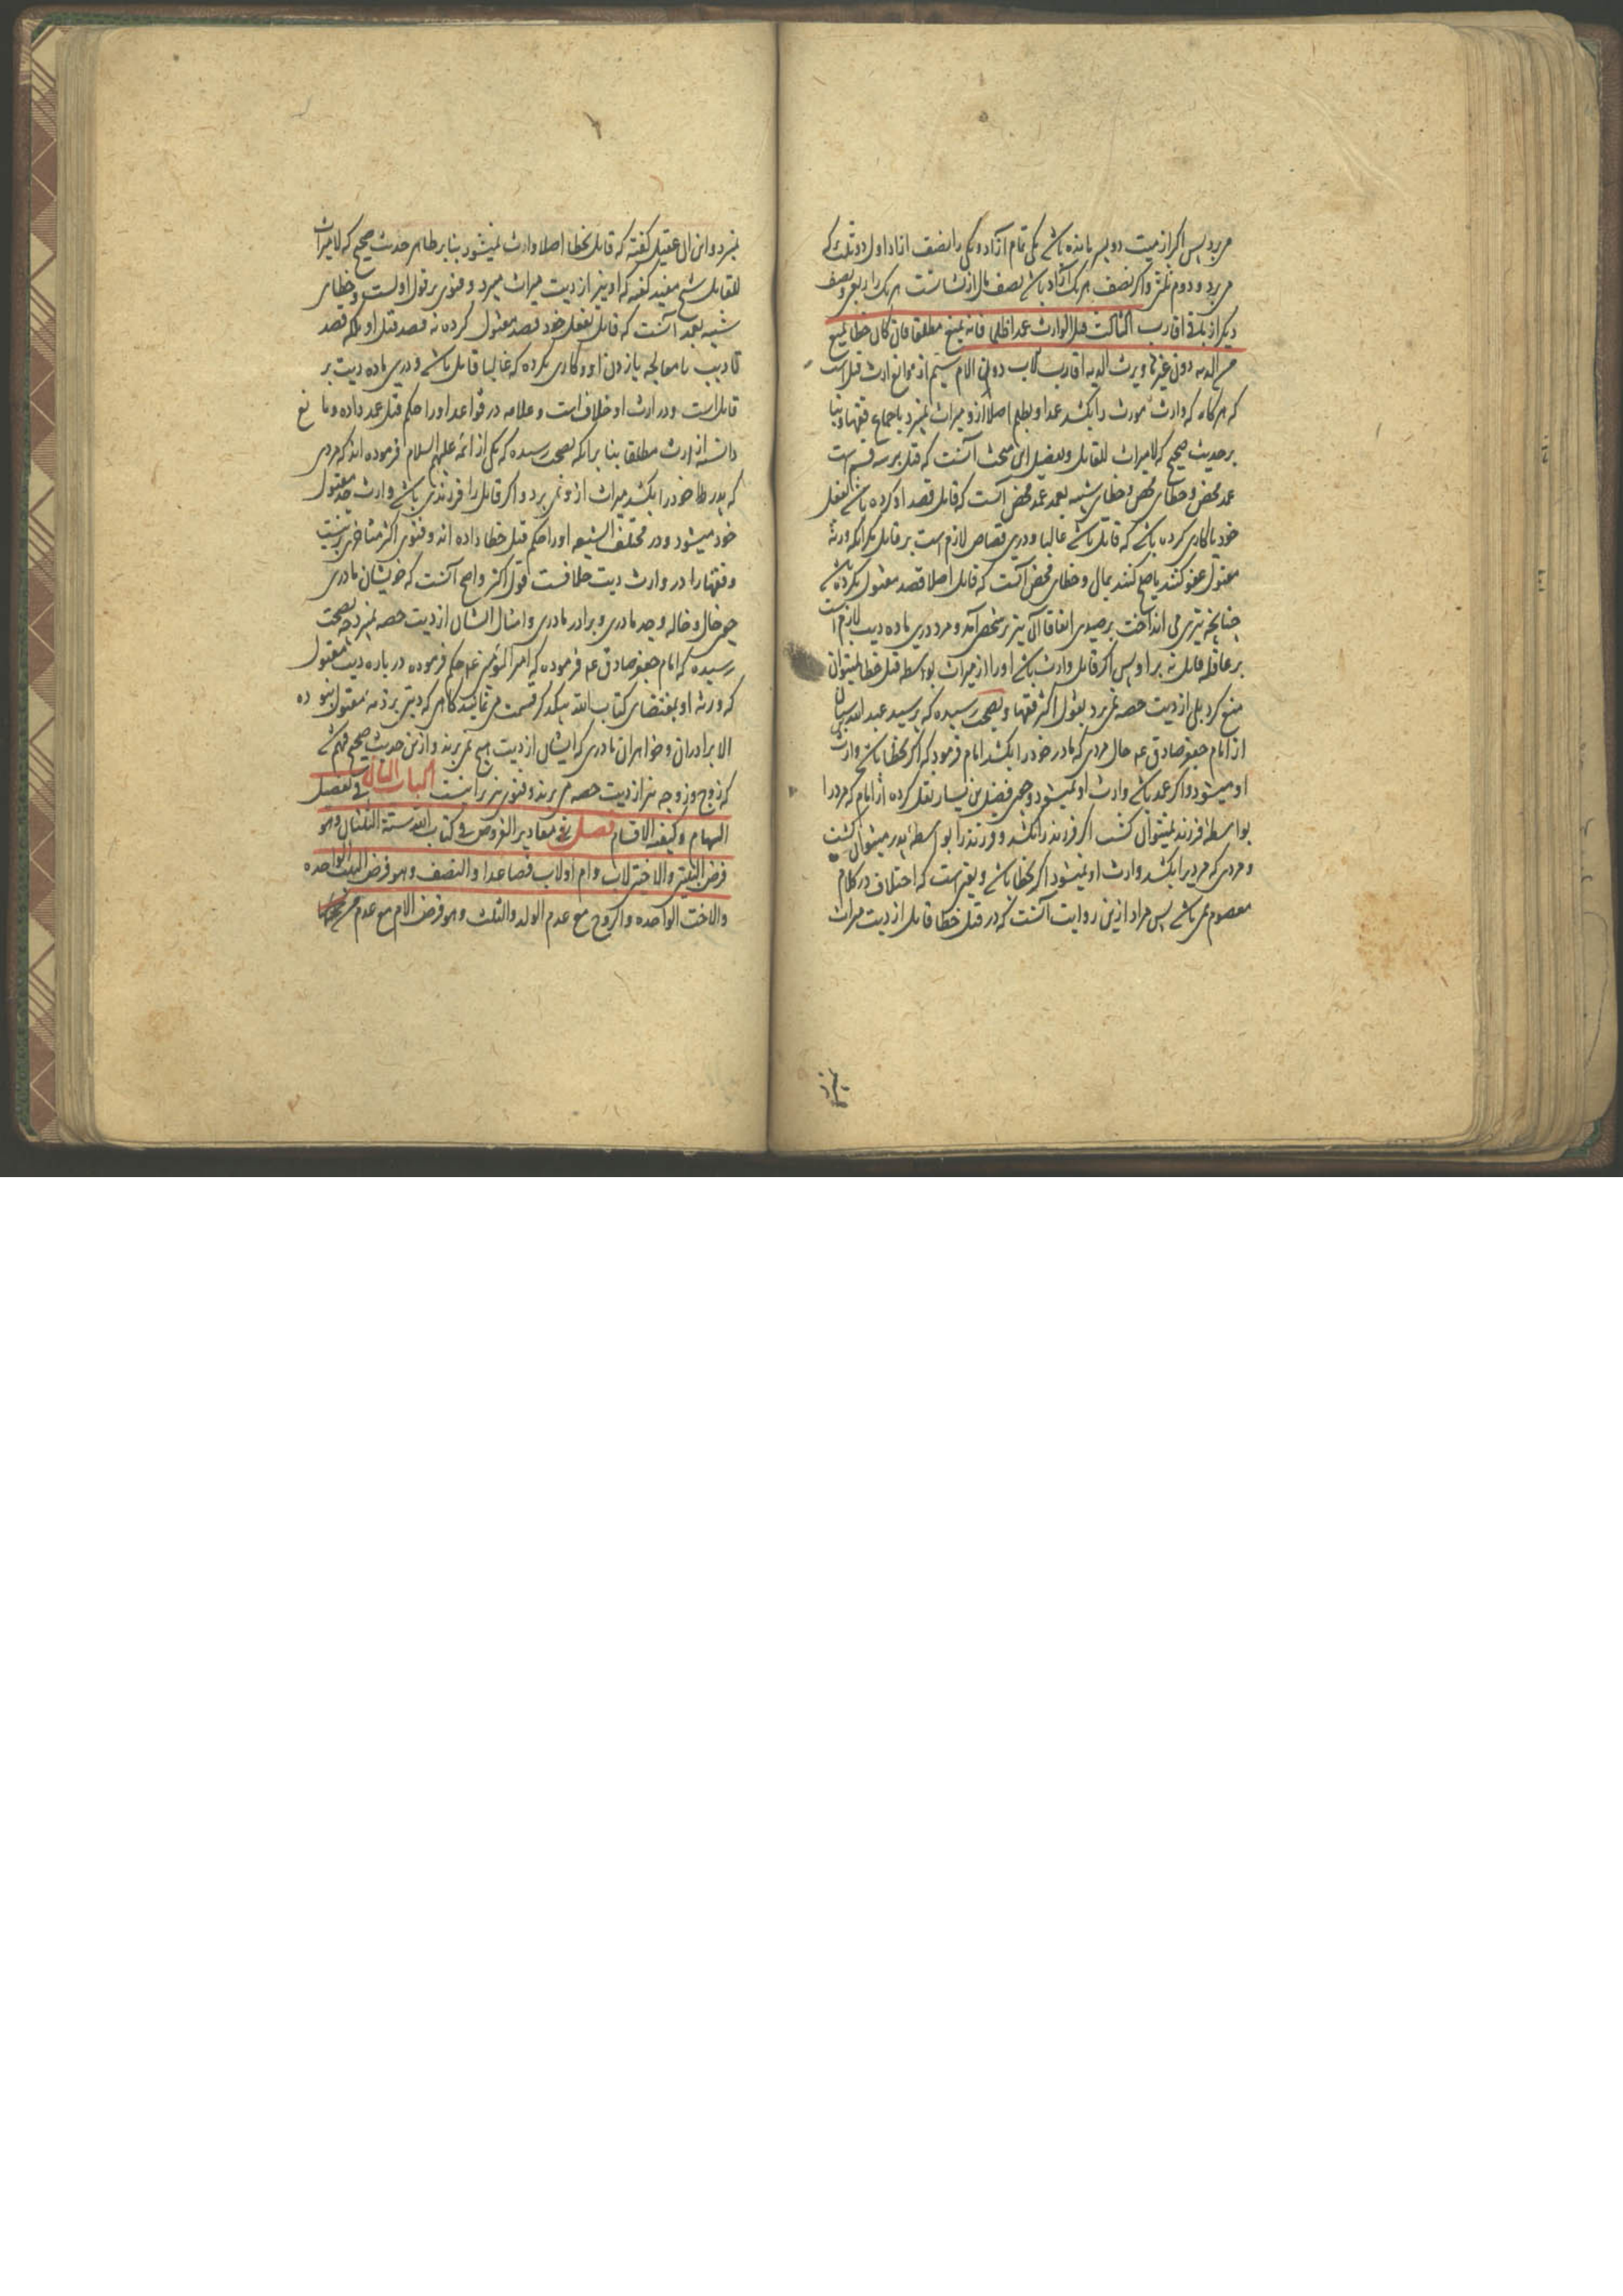 می‌برد پس اگر از میت دو پسر مانده باشد یکی تمام آزاد و یکی را نصف آزاد اول دو ثلث که
می‌برد و دوم ثلث و اگر نصف هر یک آزاد باشد نصف مال از ایشانست هر یک را ربعی و نصف
دیگر از باقی اقارب الثالث قتل الوارث عمدا ظلما فانه یمنع مطلقا فان کان خطا یمنع
من الدیه دون غیرها و یرث الدیه اقارب الاب دون الام سیم از موانع ارث قتل است
که هر گاه که وارث مورث را بکشد عمدا و بظلم اصلا ازو میراث نمیبرد باجماع فقها و بنا
بر حدیث صحیح که لا میراث للقاتل و تفصیل این مبحث آنست که قتل بر سه قسم است
عمد محض و خطای محض و خطای شبیه بعمد عمد محض آنست که قاتل قصد او کرده باشد بفعل
خود یا کاری کرده باشد که قاتل باشد غالبا و درین قصاص لازم است بر قاتل مگر آنکه ورثه
مقتول عفو کنند یا صلح کنند بمال و خطای محض آنست که قاتل اصلا قصد مقتول نکرده باشد
چنانچه تیری می انداخت بر صیدی اتفاقا آن تیر بر شخصی آمد و مرد درین ماده دیت لازم است
بر عاقله قاتل نه بر او پس اگر قاتل وارث باشد او را از میراث بواسطه قتل خطا نمیتوان
منع کرد بلی از دیت حصه نمی‌برد بقول اکثر فقها و بصحت رسیده که پرسید عبد الله بن سنان
از امام جعفر صادق عم حال مردی که مادر خود را بکشد امام فرمود که اگر بخطا باشد وارث
او میشود و اگر عمد باشد وارث او نمیشود و فضیل بن یسار نقل کرده از امام که مرد را
بواسطه فرزند نمیتوان کشت اگر فرزند را بکشد و فرزند را بواسطه پدر میتوان کشت
و مردی که مردیرا بکشد وارث او نمیشود اگر بخطا باشد و یقین است که اختلاف در کلام
معصوم نمی‌باشد پس مراد ازین روایت آنست که در قتل خطا قاتل از دیت میراث
نمیبرد و ابن ابی عقیل گفته که قاتل بخطا اصلا وارث نمیشود بنا بر ظاهر حدیث صحیح که لا میراث
للقاتل شیخ مفید گفته که او نیز از دیت میراث میبرد و فتوی بر قول اولست و خطای
شبیه بعمد آنست که قاتل بفعل خود قصد مقتول کرده نه قصد قتل او بلکه قصد
تادیب یا معالجه یا زدن او و کاری نکرده که غالبا قاتل باشد و درین ماده دیت بر
قاتل است و در ارث او خلاف است و علامه در قواعد او را حکم قتل عمد داده و مانع
دانسته از ارث مطلقا بنا بر آنکه بصحت رسیده که یکی از ائمه علیهم السلام فرموده اند که مردی
که پدر خود را بکشد میراث ازو نمی برد و اگر قاتل را فرزندی باشد وارث جد مقتول
خود میشود و در مختلف الشیعه او را حکم قتل خطا داده اند و فتوی اکثر متاخرین برینست
و فقها را در وارث دیت خلافست قول اکثر و اصح آنست که خویشان مادری
چون خال و خاله و جد مادری و برادر مادری و امثال ایشان از دیت حصه نمیبرد چه بصحت
رسیده که امام جعفر صادق عم فرموده که امیر المؤمنین عم حکم فرموده در باره دیت مقتول
که ورثه او بمقتضای کتاب الله بیکدیگر قسمت می نمایند گاهی که دینی بر ذمه مقتول نبوده
الا برادران و خواهران مادری که ایشان از دیت هیچ نمی‌برند و ازین حدیث صحیح فهم شد
که زوج و زوجه نیز از دیت حصه می‌برند و فتوی نیز برآنست الباب الثانی فی تفصیل
السهام و کیفیة الاقسام فصل فی مقادیر الفروض فی کتاب الله ستة الثلثان و هو
فرض البنتین و الاختین لاب و ام او لاب فصاعدا و النصف و هو فرض البنت الواحده
و الاخت الواحده و الزوج مع عدم الولد و الثلث و هو فرض الام مع عدم من یحجبها